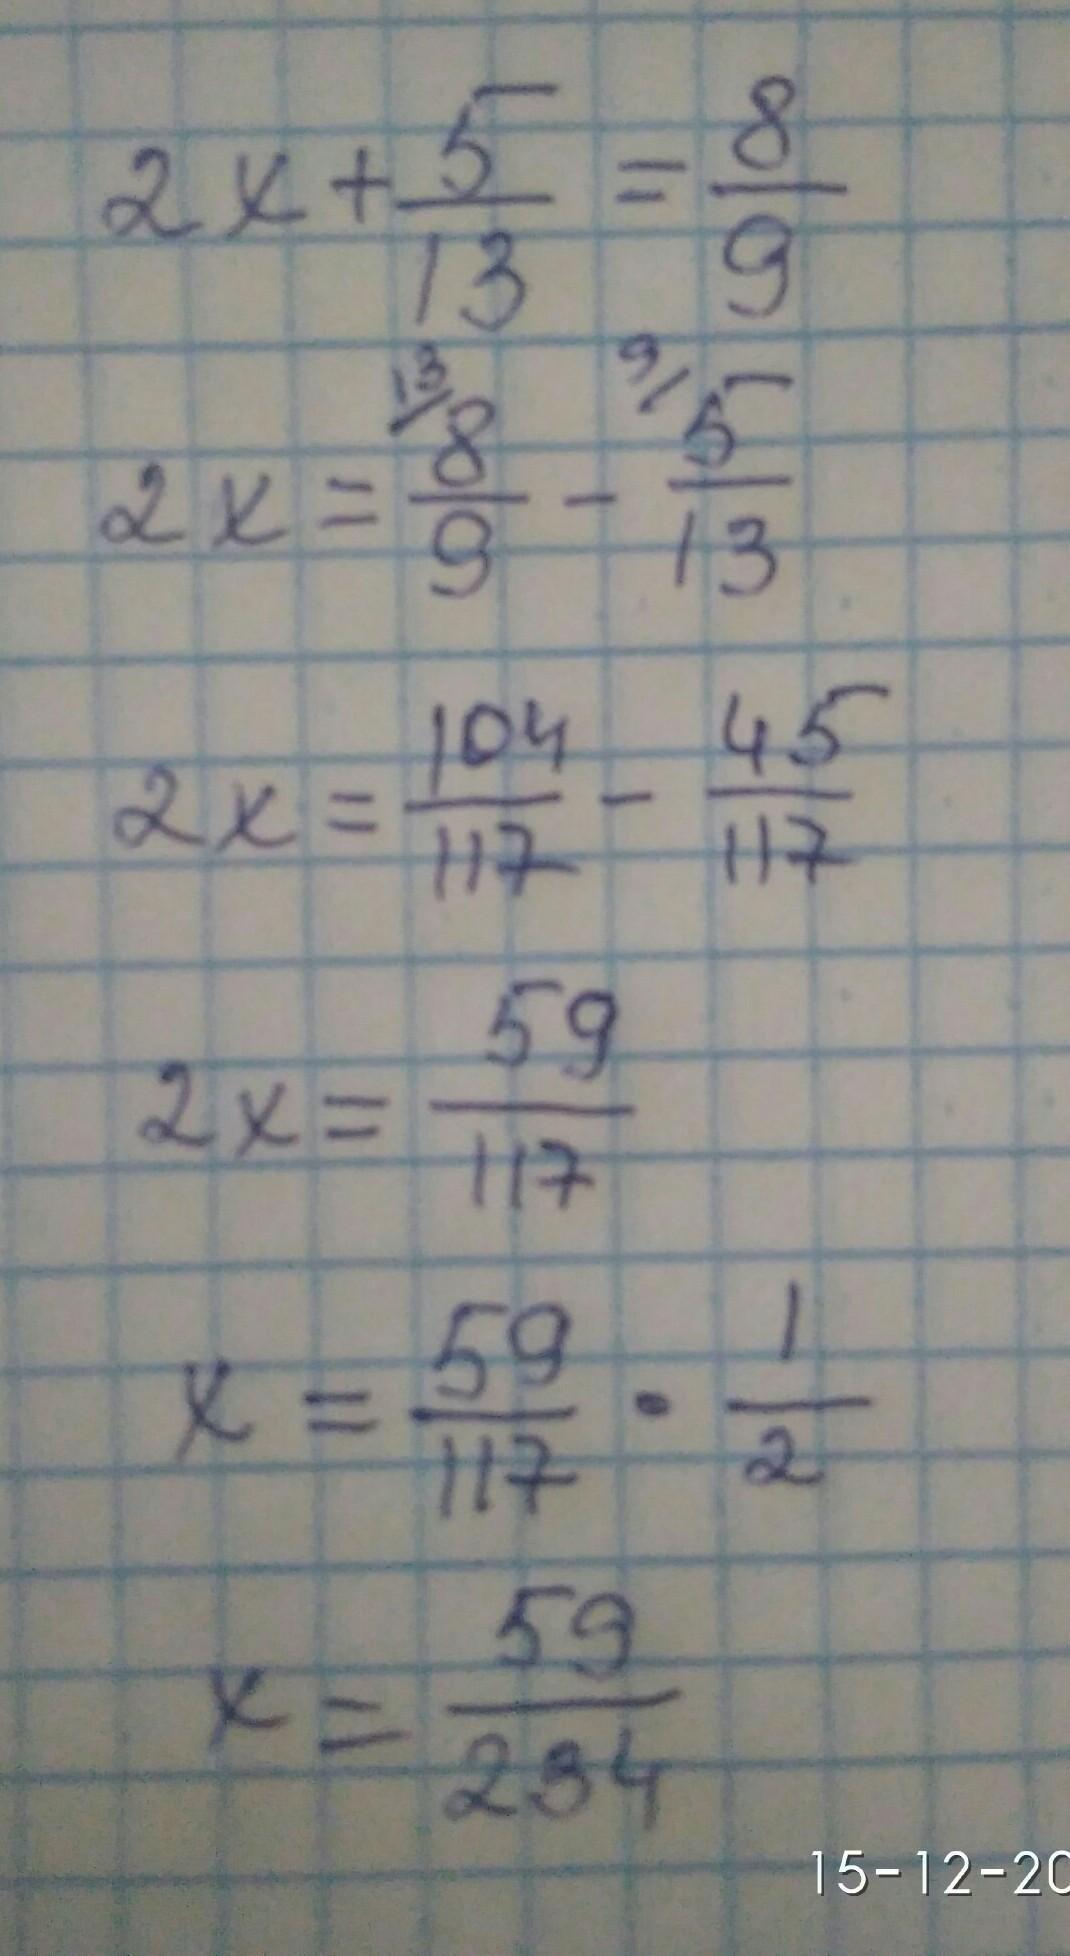 2x + 5/13 = 8/9
2x = 13/ 8/9 - 9/ 5/13
2x = 104/117 - 45/117
2x = 59/117
x = 59/117 · 1/2
x = 59/234
15-12-20